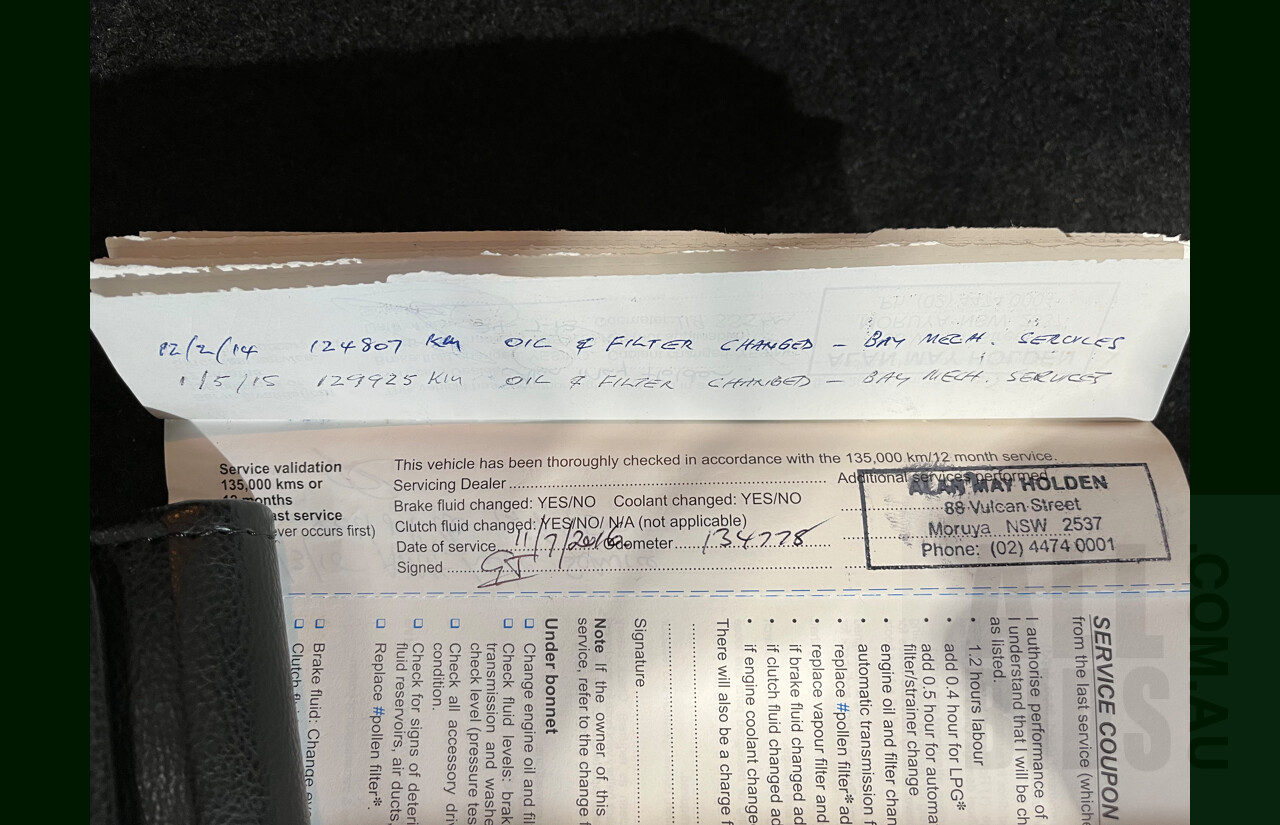 12/2/14 124807 Km OIL & FILTER CHANGED - BAY MECH. SERVICES
1/5/15 129925 Km OIL & FILTER CHANGED - BAY MECH. SERVICES
Service validation
135,000 kms or
12 months
ast service
ever occurs first)
This vehicle has been thoroughly checked in accordance with the 135,000 km/12 month service.
Servicing Dealer
Additional services performed
Brake fluid changed: YES/NO Coolant changed: YES/NO
Clutch fluid changed: YES/NO/ N/A (not applicable)
Date of service 11/7/2016 Odometer 134778
Signed
ALAN MAY HOLDEN
88 Vulcan Street
Moruya NSW 2537
Phone: (02) 4474 0001
SERVICE COUPON
from the last service (whiche
I authorise performance of
I understand that I will be ch
as listed.
• 1.2 hours labour
• add 0.4 hour for LPG*
• add 0.5 hour for automa
filter/strainer change
• engine oil and filter chan
• automatic transmission f
• replace #pollen filter* ad
• replace vapour filter and
• if brake fluid changed ad
• if clutch fluid changed ad
• if engine coolant change
There will also be a charge f
Signature
Note If the owner of this
service, refer to the change f
Under bonnet
Change engine oil and fil
Check fluid levels: brak
transmission and washe
check level (pressure tes
Check all accessory driv
condition.
Check for signs of deteri
fluid reservoirs, air ducts,
Replace #pollen filter*
Brake fluid: Change ev
Clutch fl
.COM.AU